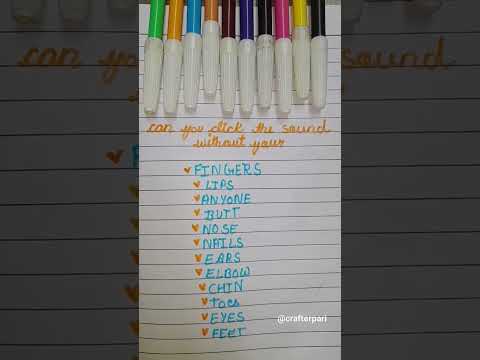 can you click the sound
without your
FINGERS
LIPS
ANYONE
BUTT
NOSE
NAILS
EARS
ELBOW
CHIN
toes
EYES
FEET
@crafterpari